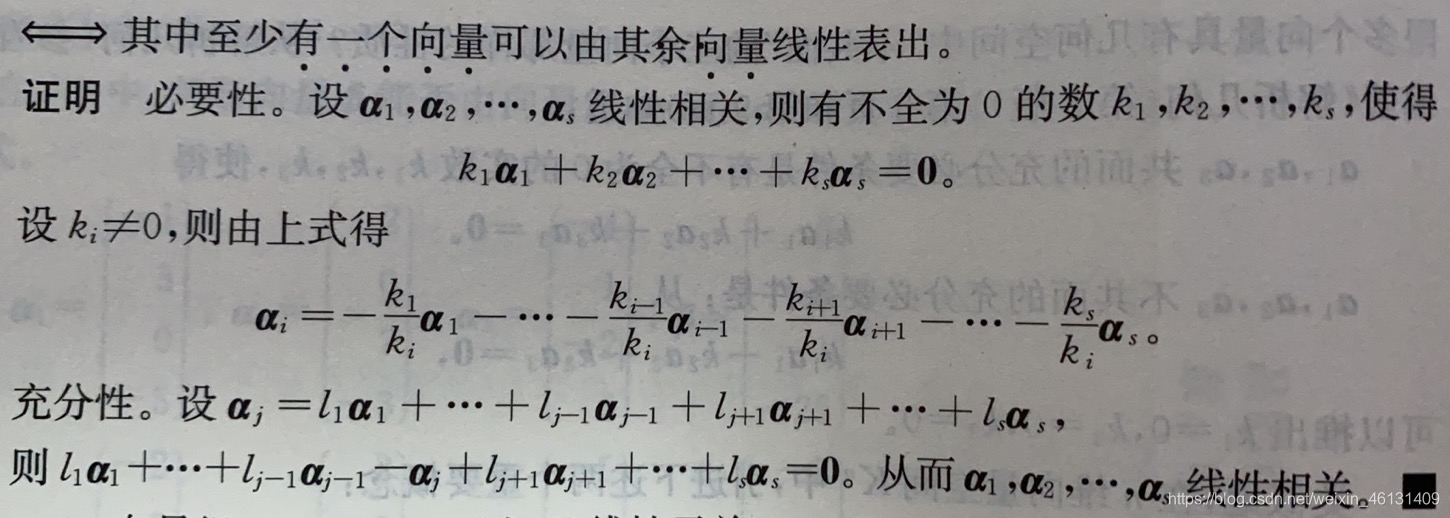 ⟺ 其中至少有一个向量可以由其余向量线性表出。
证明 必要性。设 α₁,α₂,⋯,αₛ 线性相关,则有不全为 0 的数 k₁,k₂,⋯,kₛ,使得
k₁α₁+k₂α₂+⋯+kₛαₛ=0。
设 kᵢ≠0,则由上式得
αᵢ=−k₁/kᵢ α₁−⋯−kᵢ₋₁/kᵢ αᵢ₋₁−kᵢ₊₁/kᵢ αᵢ₊₁−⋯−kₛ/kᵢ αₛ。
充分性。设 αⱼ=l₁α₁+⋯+lⱼ₋₁αⱼ₋₁+lⱼ₊₁αⱼ₊₁+⋯+lₛαₛ,
则 l₁α₁+⋯+lⱼ₋₁αⱼ₋₁−αⱼ+lⱼ₊₁αⱼ₊₁+⋯+lₛαₛ=0。从而 α₁,α₂,⋯,αₛ 线性相关。■
https://blog.csdn.net/weixin_46131409